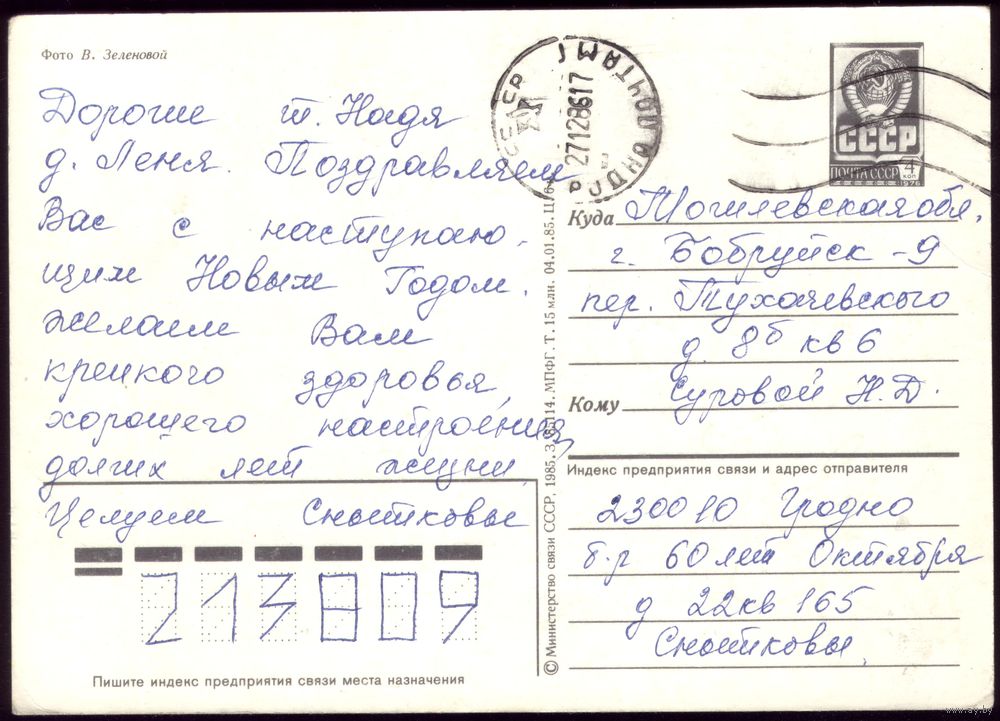 Фото В. Зеленовой
Дорогие т. Надя
д. Леня. Поздравляем
Вас с наступаю-
щим Новым Годом.
желаем Вам
крепкого здоровья,
хорошего настроения,
долгих лет жизни.
Целуем Сныткові
213809
Пишите индекс предприятия связи места назначения
© Министерство связи СССР, 1985. З. 85114. МПФГ. Т. 15 млн. 04.01.85.
27128617
СССР
ПОЧТА СССР
4 коп
1976
Куда Могилевская обл.
г. Бобруйск-9
пер. Тухачевского
д. 8б кв 6
Кому Суровой Н.Д.
Индекс предприятия связи и адрес отправителя
230010 Гродно
б-р 60 лет Октября
д 22 кв 165
Снытковы
www.ay.by